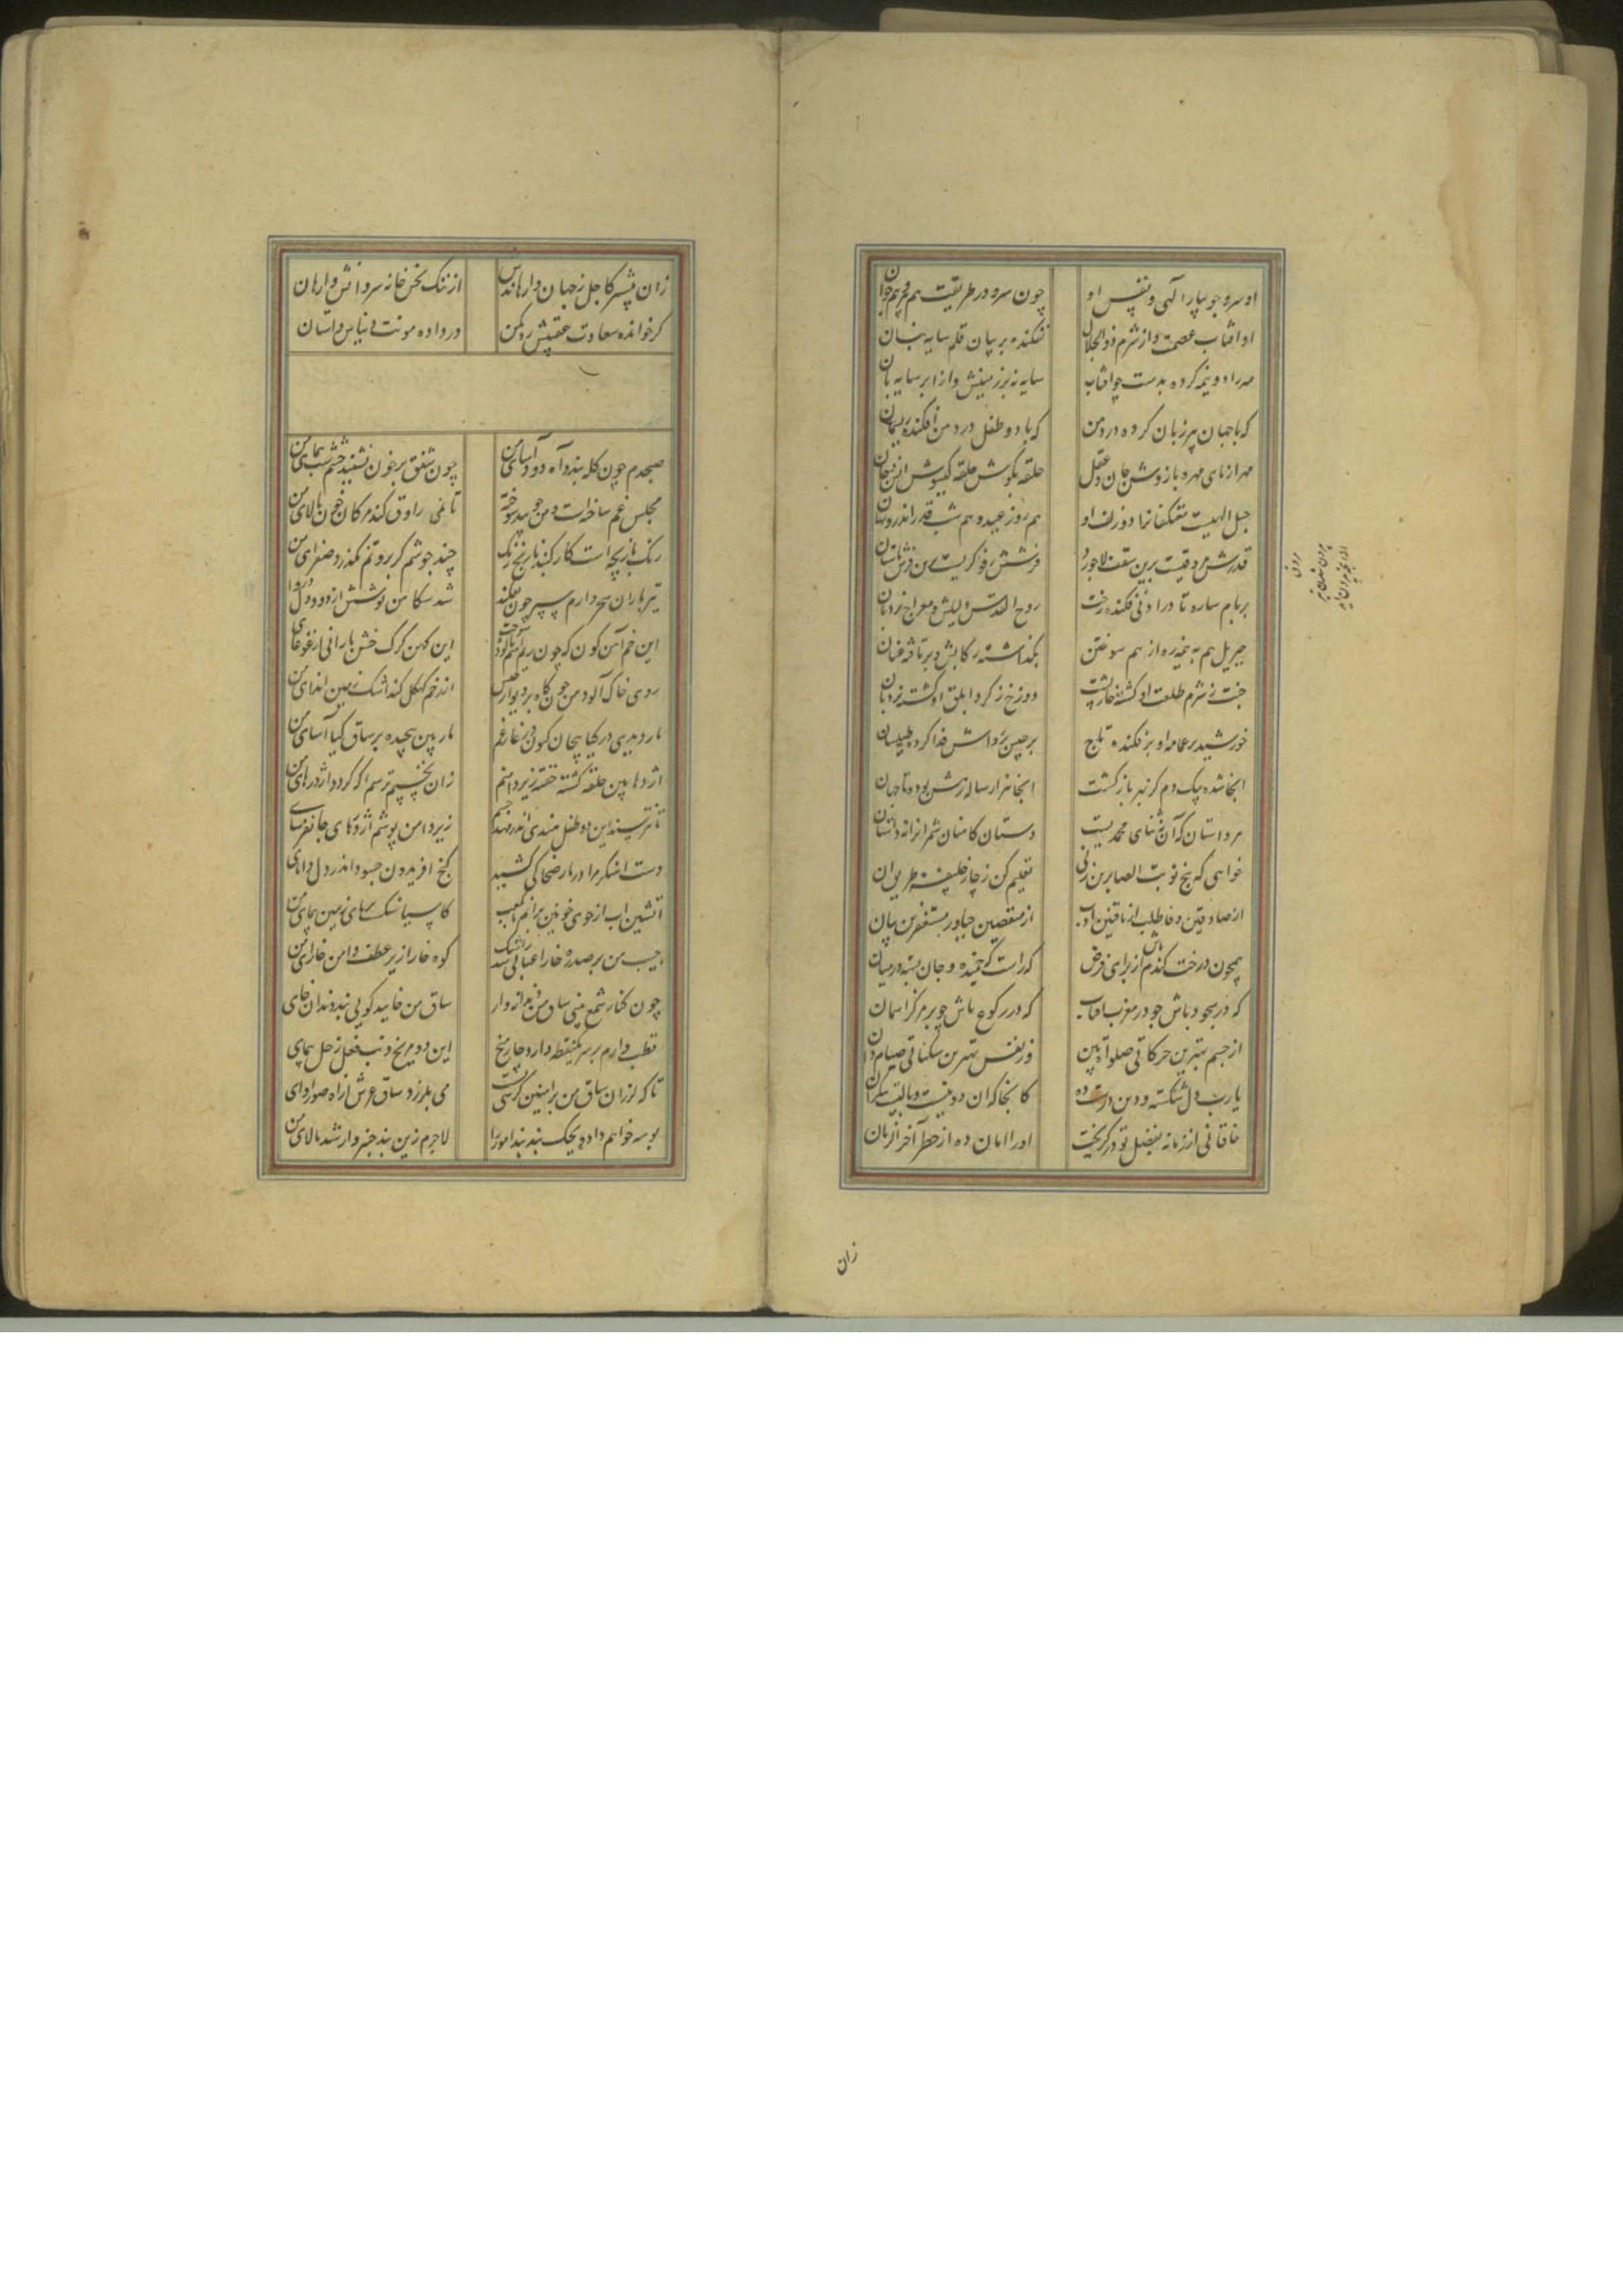 او سرو جویبار الهی و نفس او چون سرو در طریقت هم پیر و هم جوان
او آفتاب عصمت و از شرم ذوالجلال نفکنده بر بیان قلم سایه بنان
مه را دو نیمه کرده بدست چو آفتاب سایه نه بر زمینش و از ابر سایه بان
که با جهان پیر زبان کرده در دمن که با دو طفل در دمن افکنده ریسمان
مهر ازنای مهره بازوش جان و عقل حلقه بگوش حلقه گیسوش انس و جان
حبل الهیست معتکفانرا دو زلف او هم روز عید و هم شب قدر اندرو نهان
قدرش مروقیست برین سقف لاجورد فرشش رفوگریست برین فرش باستان
بر بام سدره تا در ادنی فکنده رخت روح القدس دلیلش و معراج نردبان
جبریل هم به نیمه ره از بیم سوختن بگذاشته رکابش و برتافته عنان
جنت ز شرم طلعت او گشته خارپشت دوزخ ز گرد ابلق او گشته نردبان
خورشید بر عمامه او برفکنده تاج برجیس بر رداش فدا کرده طیلسان
اینجا شده بیک دم کز نبر بازگشت اینجا هزار ساله رهش بوده تا جهان
هر داستان که آن نه ثنای محمدیست دستان کاهنان شمر آنرا نه داستان
خواهی که پنج نوبت الصابرین زنی تعلیم کن ز چار خلیفه طریق آن
از صادقین وفا طلب از قانتین ادب از متقین حیا و ز مستغفرین بیان
همچون درخت گندم باش از برای فرض که راست که خمیده و جان بسته در میان
که در سجود باش چو در مغرب آفتاب که در رکوع باش چو بر مرکز آسمان
از جسم بهترین حرکاتی صلوة بین وز نفس بهترین سکناتی صیام دان
یارب دل شکسته و دین درست ده کانجا که این دو نیست وبالیست بیکران
خاقانی از زمانه بفضل تو در گریخت او را امان ده از خطر آخر الزمان
زان
زان پیشتر کاجل ز جهان وارهاندش از ننگ نحس خانه سردانش وارهان
کر خوانده سعادت عقبیش رد مکن در داده مونت دنیاش واستان
صبحدم چون کله بندد آه دودآسای من چون شفق در خون نشیند چشم شب پیمای من
مجلس غم ساخته است و من چو بید سوخته تا بمن راوق کند مژگان خون پالای من
رنگ بازیچه است کار گنبد نارنج رنگ چند جوشم کز بروتم نگذرد صفرای من
تیرباران سحر دارم سپر چون نفکند
این خم آهن گون که چون ریم آهنم پالود و سوخت
روی خاک آلود من چون کاه بر دیوار حبس از رخم کهگل کند اشک زمین اندای من
مار دیدی در گیا پیچان کنون در غار غم مار بین پیچیده بر ساق گیا آسای من
اژدها بین حلقه گشته خفته زیر دامنم زان نجنبم ترسم آگه گردد اژدرهای من
تا نترسند این دو طفل هندی اندر مهد چشم زیر دامن پوشم اژدرهای جانفرسای من
دست آهنگر مرا در مار ضحاکی کشید گنج افریدون چه سود اندر دل دانای من
آتشین آب از خوی خونین برانم تا بکعب کاسیا سنگست بر پای زمین پیمای من
جیب من بر صدره خارا عتابی شد ز اشک کوه خارا زیر عطف دامن خارای من
چون کنار شمع بینی ساق من دندانه دار ساق من خایید گویی بند دندان خای
قطب وارم بر سر یک نقطه دارد چار میخ این دو مریخ ذنب فعل زحل سیمای
تا که لرزان ساق من بر آهنین کرسی نشست می بلرزد ساق عرش از آه صور آوای
بوسه خواهم داد ویحک بند پند آموز را لاجرم زین بند چنبر وار شد بالای من